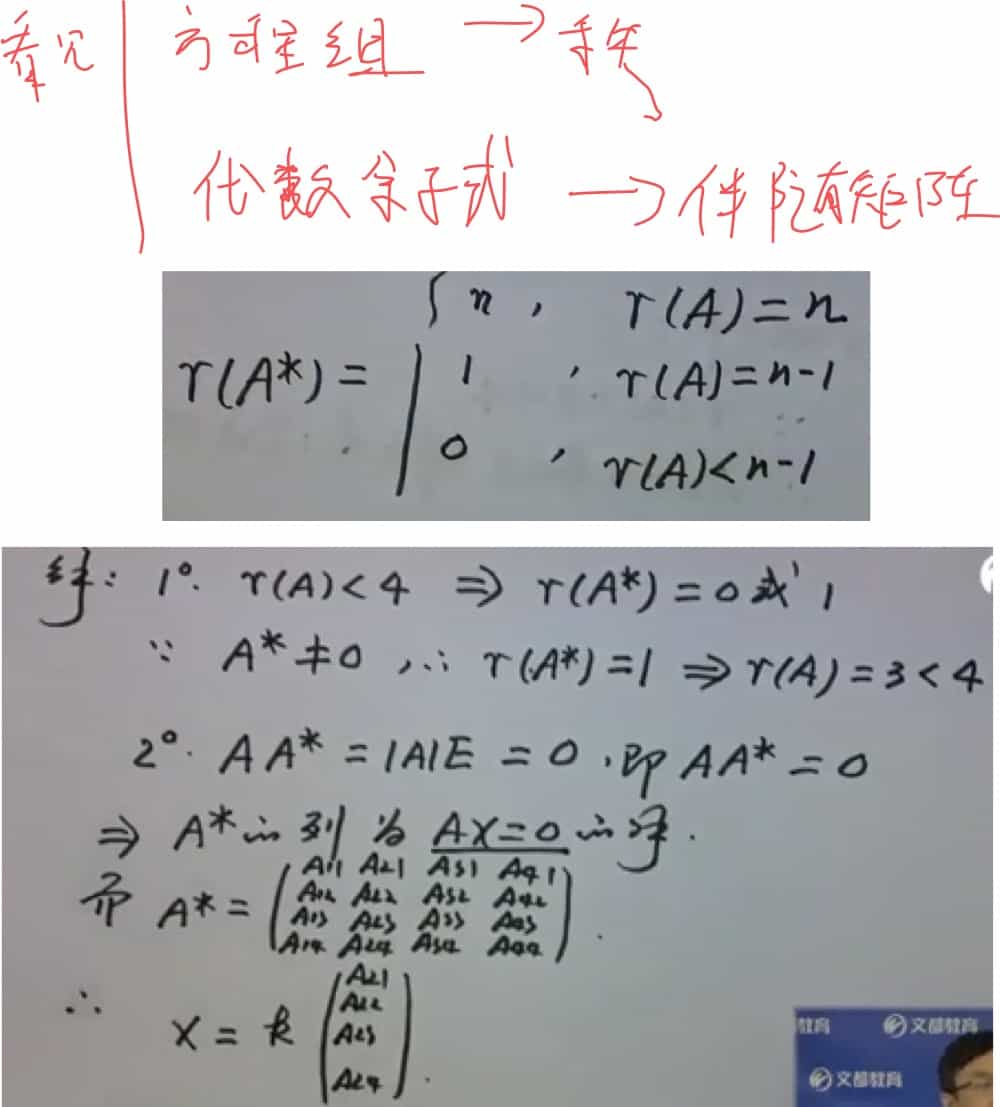 看见 方程组 → 秩
代数余子式 → 伴随矩阵
n , r(A)=n
r(A*)= 1 , r(A)=n-1
0 , r(A)<n-1
解: 1°. r(A)<4 ⇒ r(A*)=0或1
∵ A*≠0, ∴ r(A*)=1 ⇒ r(A)=3<4
2°. AA*=|A|E=0, 即 AA*=0
⇒ A*的列为 AX=0的解.
而 A*= A11 A21 A31 A41
A12 A22 A32 A42
A13 A23 A33 A43
A14 A24 A34 A44 .
∴ X = k A21
A22
A23
A24 .
教育 文都教育
文都教育